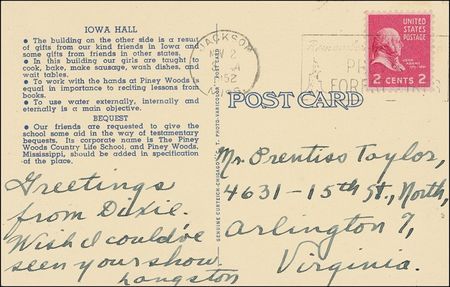 IOWA HALL
● The building on the other side is a result
of gifts from our kind friends in Iowa and
some gifts from friends in other states.
● In this building our girls are taught to
cook, bake, make sausage, wash dishes, and
wait tables.
● To work with the hands at Piney Woods is
equal in importance to reciting lessons from
books.
● To use water externally, internally and
eternally is a main objective.
BEQUEST
● Our friends are requested to give the
school some aid in the way of testamentary
bequests. Its corporate name is The Piney
Woods Country Life School, and Piney Woods,
Mississippi, should be added in specification
of the place.
Greetings
from Dixie.
Wish I could've
seen your show.
Langston
GENUINE CURTEICH-CHICAGO
JACKSON
2
52
POST CARD
UNITED STATES
POSTAGE
2 CENTS 2
Mr. Prentiss Taylor,
4631-15th St., North,
Arlington 7,
Virginia.